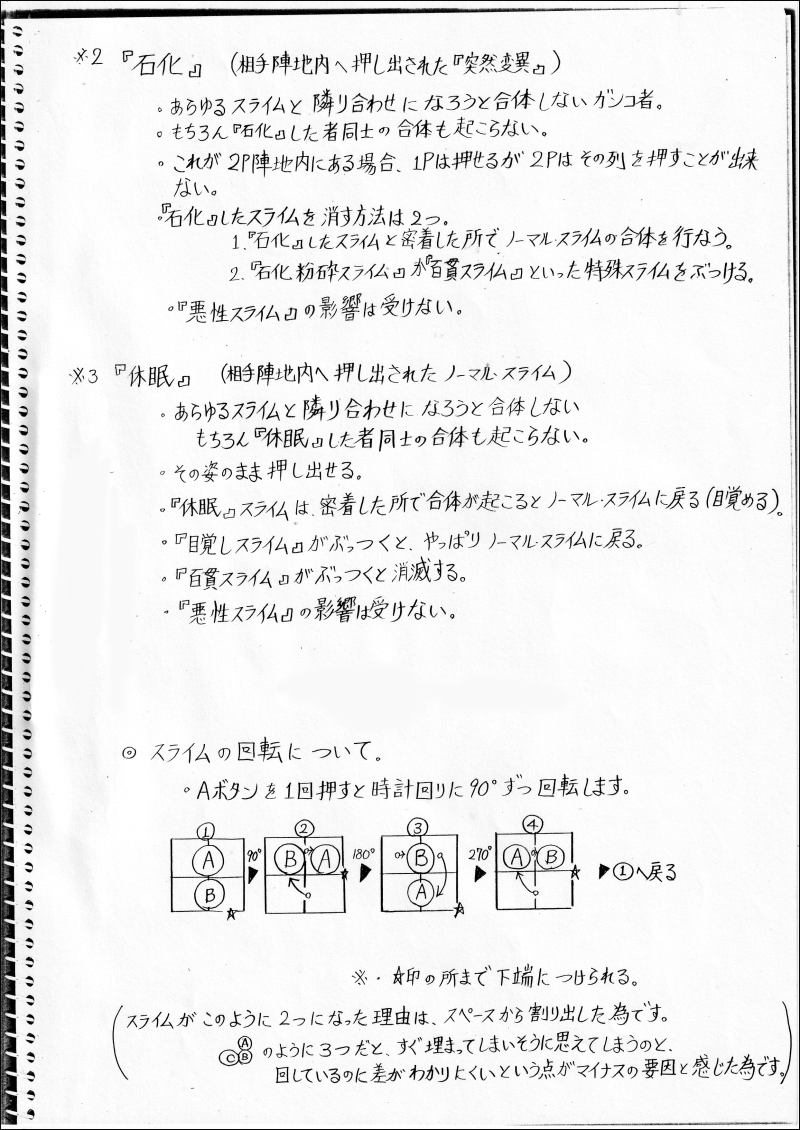 ※2 『石化』 (相手陣地内へ押し出された『突然変異』)
・あらゆるスライムと隣り合わせになろうと合体しないガンコ者。
・もちろん『石化』した者同士の合体も起こらない。
・これが2P陣地内にある場合、1Pは押せるが2Pはその列を押すことが出来
ない。
・『石化』したスライムを消す方法は2つ。
1.『石化』したスライムと密着した所でノーマル・スライムの合体を行なう。
2.『石化粉砕スライム』か『百貫スライム』といった特殊スライムをぶつける。
・『悪性スライム』の影響は受けない。
※3 『休眠』 (相手陣地内へ押し出されたノーマル・スライム)
・あらゆるスライムと隣り合わせになろうと合体しない
もちろん『休眠』した者同士の合体も起こらない。
・その姿のまま押し出せる。
・『休眠』スライムは、密着した所で合体が起こるとノーマル・スライムに戻る(目覚める)。
・『目覚しスライム』がぶっつくと、やっぱりノーマル・スライムに戻る。
・『百貫スライム』がぶっつくと消滅する。
・『悪性スライム』の影響は受けない。
◎ スライムの回転について。
・Aボタンを1回押すと時計回りに90°ずつ回転します。
① ② ③ ④
A 90° B A 180° B 270° A B ▶①へ戻る
B A
※・☆印の所まで下端につけられる。
(スライムがこのように2つになった理由は、スペースから割り出した為です。
A C B のように3つだと、すぐ埋まってしまいそうに思えてしまうのと、
回しているのに差がわかりにくいという点がマイナスの要因と感じた為です。)